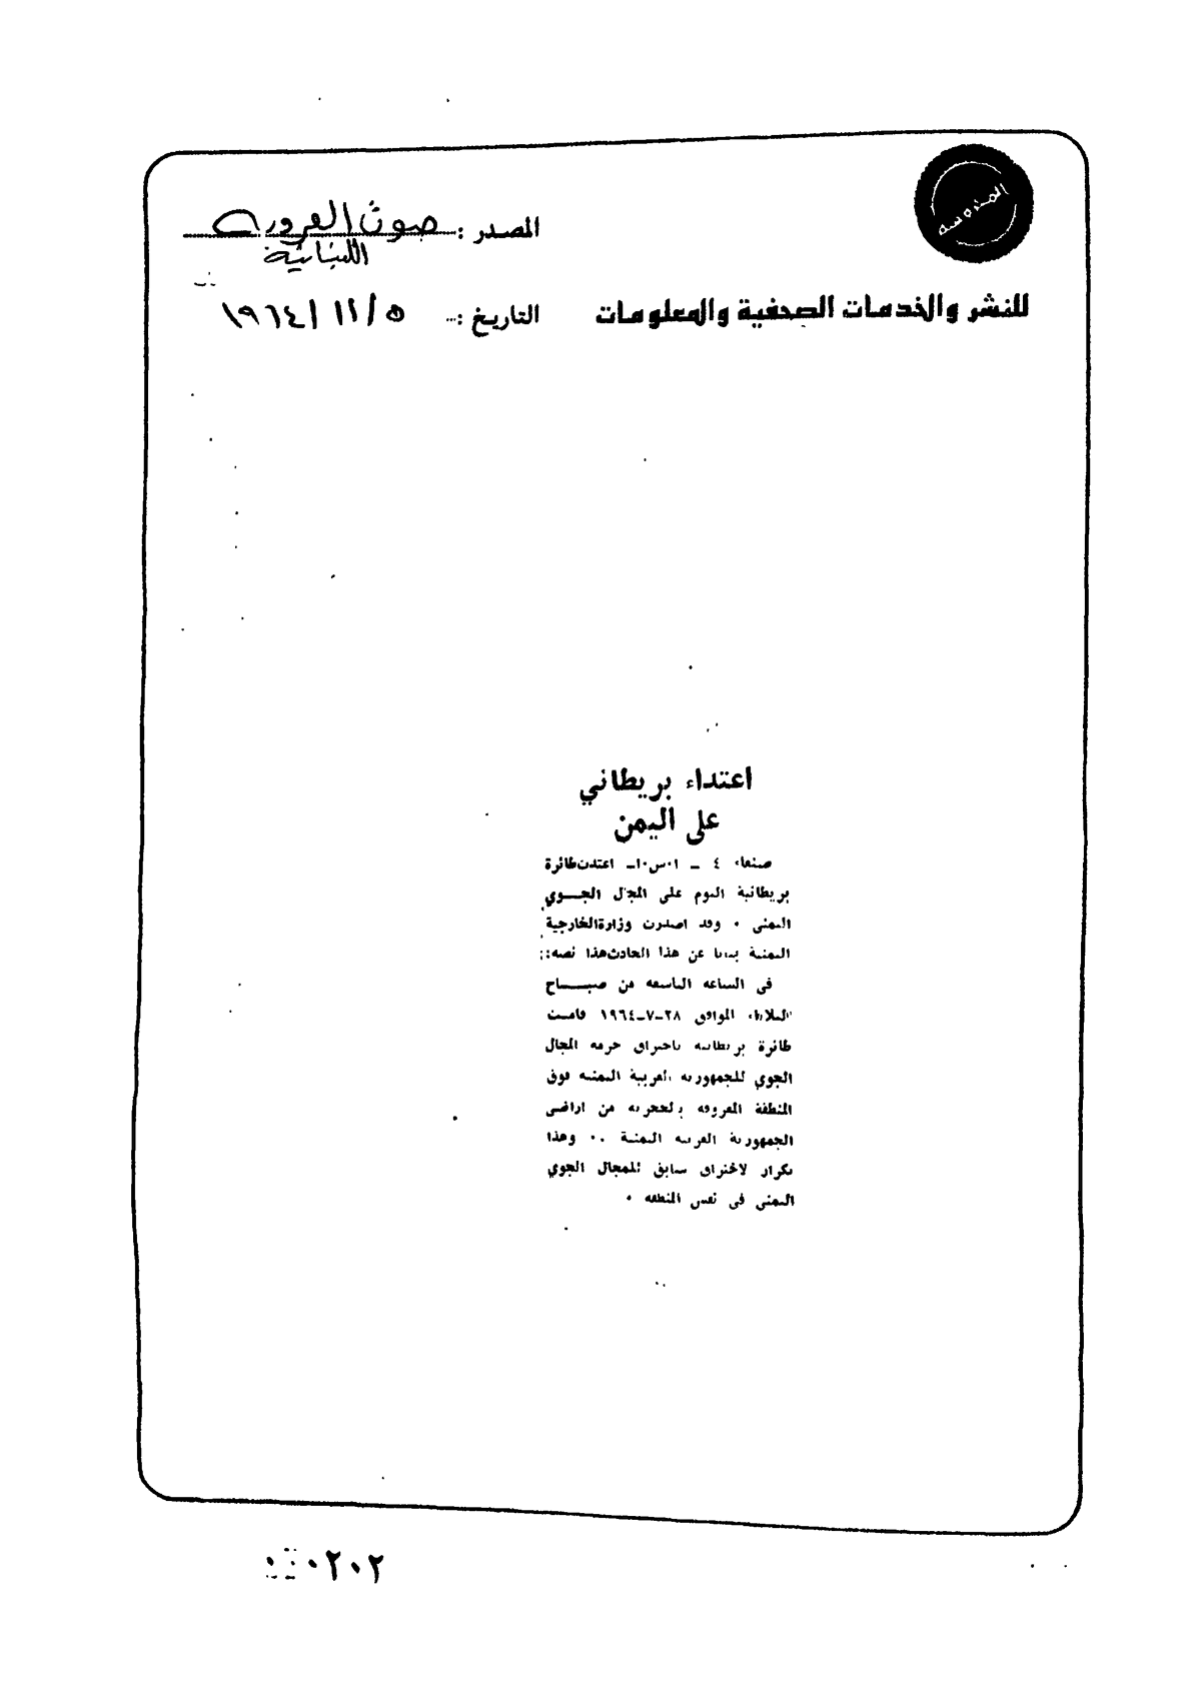 المحروسة
المصدر : صوت العروبة
اللبنانية
للنشر والخدمات الصحفية والمعلومات
التاريخ : ٥/١١/١٩٦٤
اعتداء بريطاني
على اليمن
صنعاء ٤ ـ ا٠س٠ا ـ اعتدت طائرة
بريطانية اليوم على المجال الجـــوي
اليمني ٠ وقد اصدرت وزارة الخارجية
اليمنية بيانا عن هذا الحادث هذا نصه :
في الساعة التاسعة من صبـــاح
الثلاثاء الموافق ٢٨-٧-١٩٦٤ قامت
طائرة بريطانية باختراق حرمة المجال
الجوي للجمهورية العربية اليمنية فوق
المنطقة المعروفة بالحجرية من اراضي
الجمهورية العربية اليمنية ٠٠ وهذا
تكرار لاختراق سابق للمجال الجوي
اليمني في نفس المنطقة ٠
٠٢٠٢